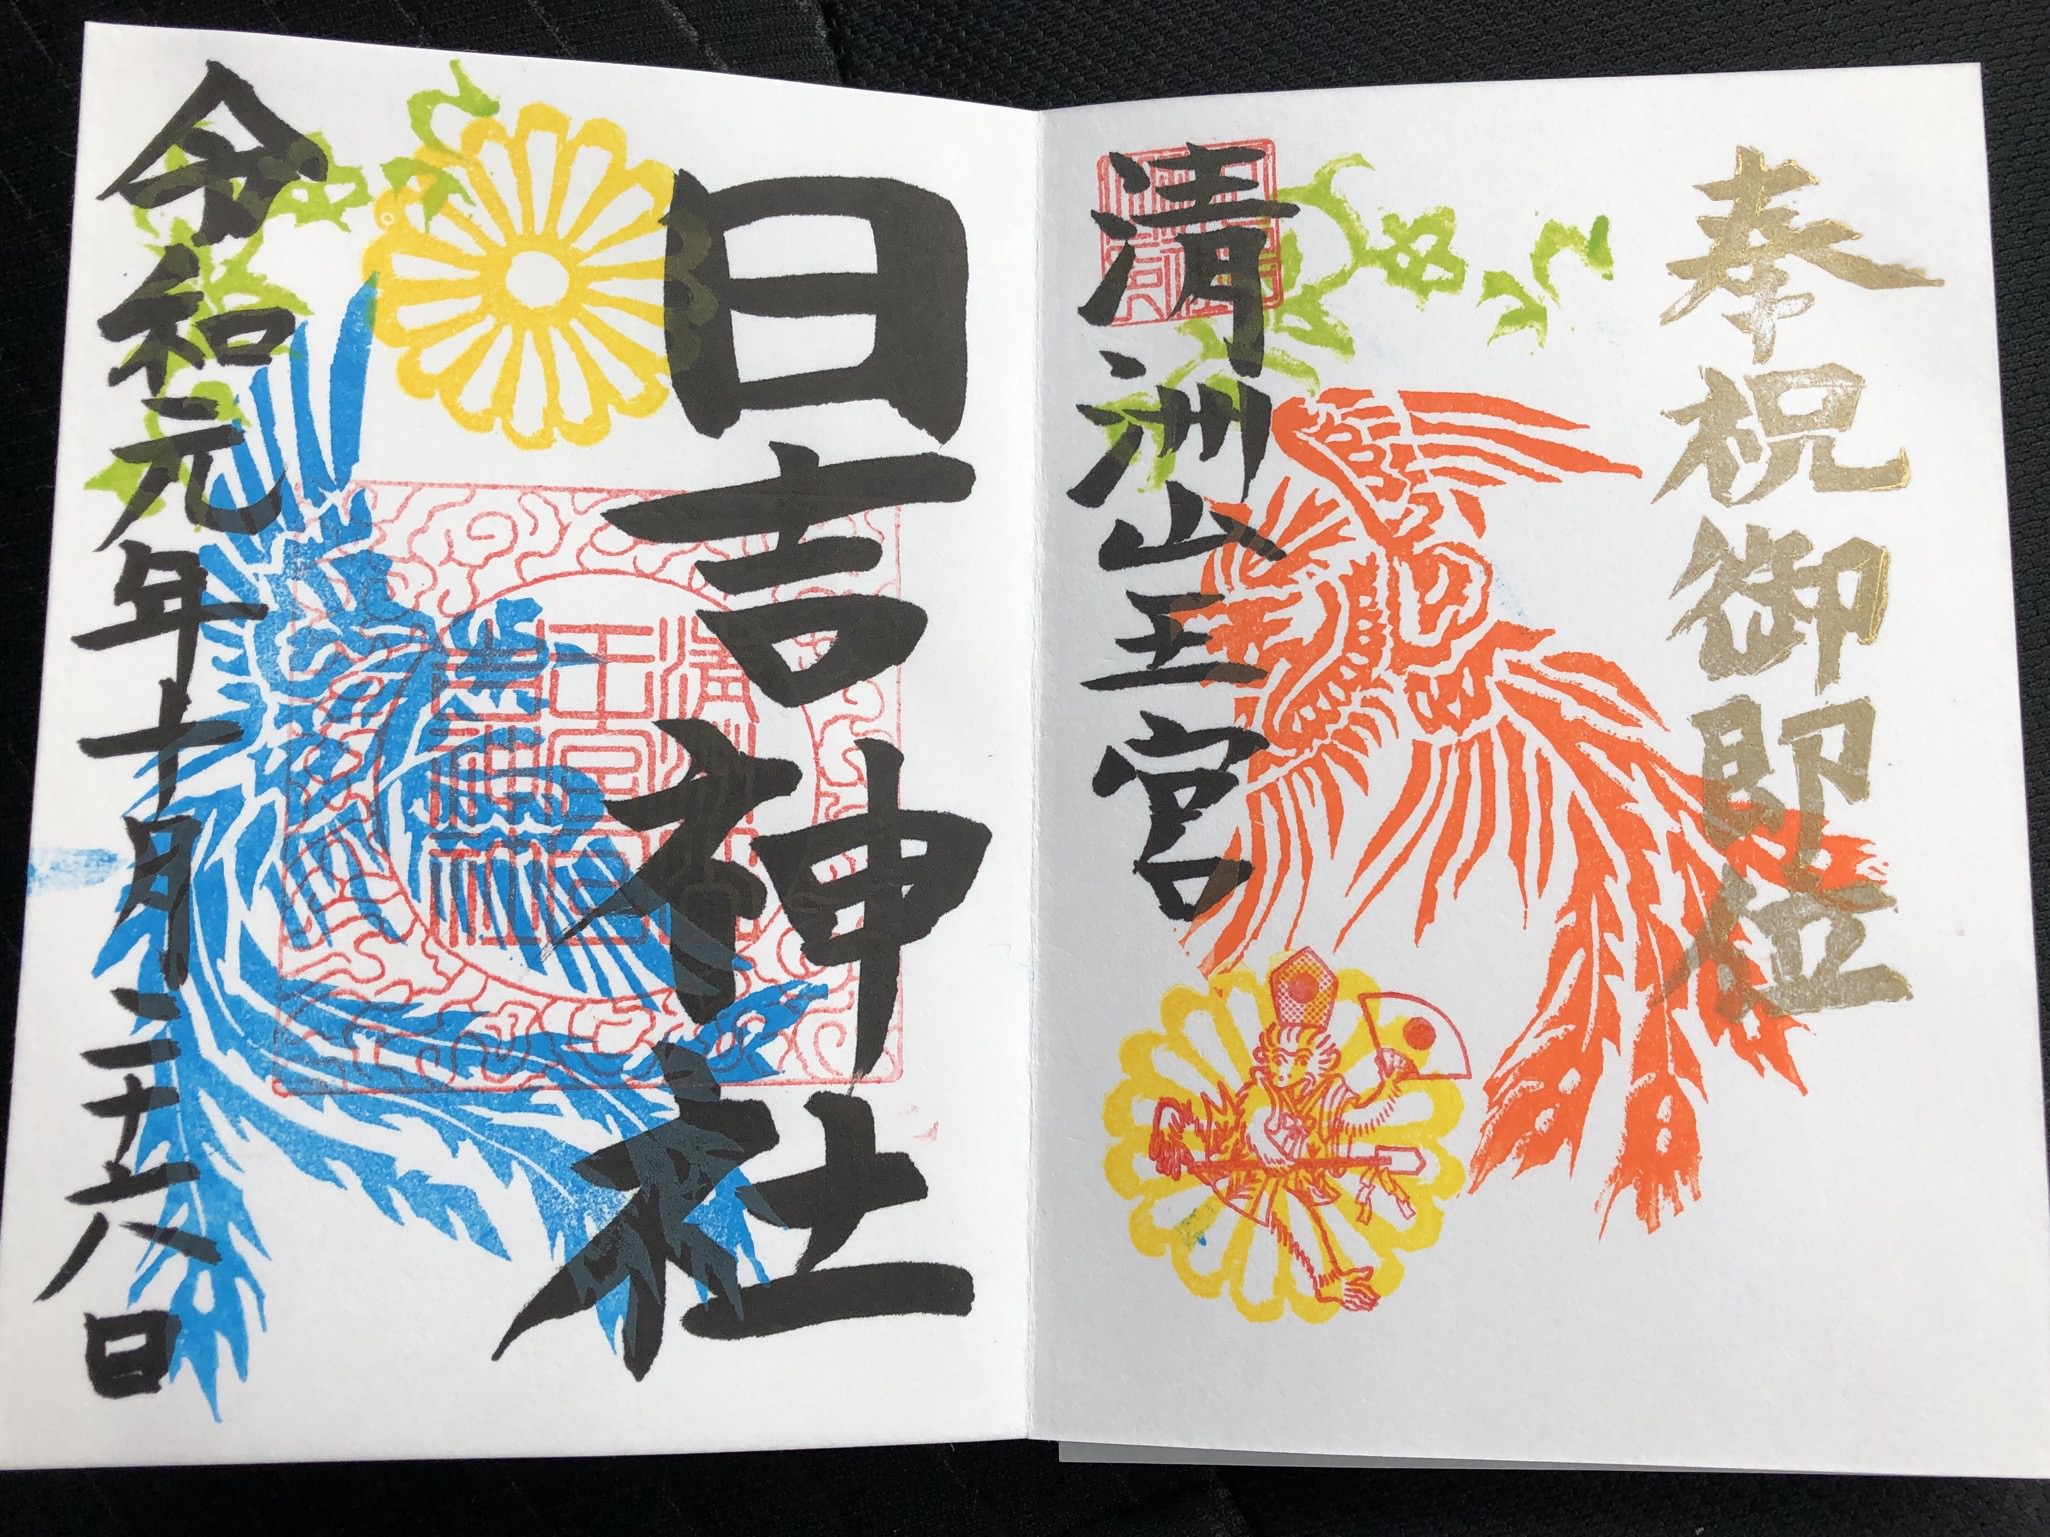 奉祝御即位
清洲山王宮
日吉神社
令和元年十月二十六日